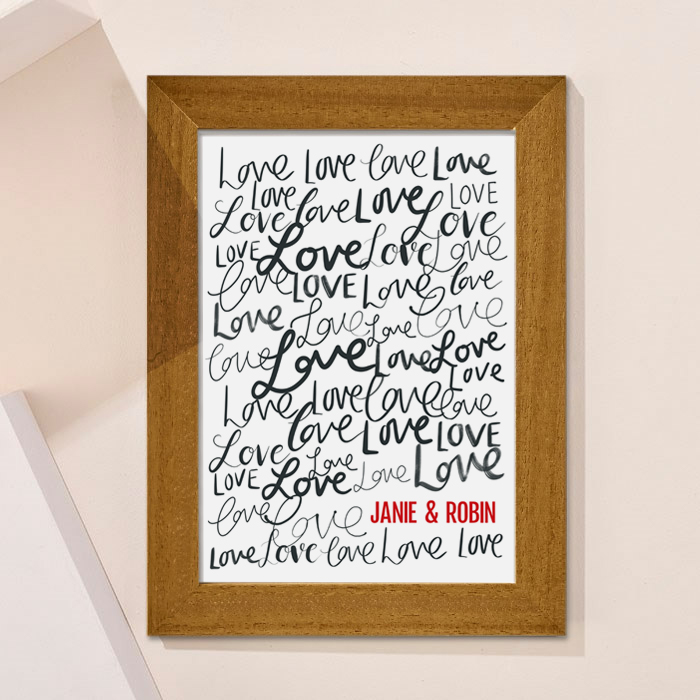 Love Love Love Love
Love LOVE
Love Love Love Love
LOVE Love Love Love
Love LOVE Love Love
Love Love Love Love
Love Love Love Love
Love
Love Love Love Love
Love Love LOVE
Love Love Love
LOVE Love Love
Love Love JANIE & ROBIN
Love Love Love Love Love